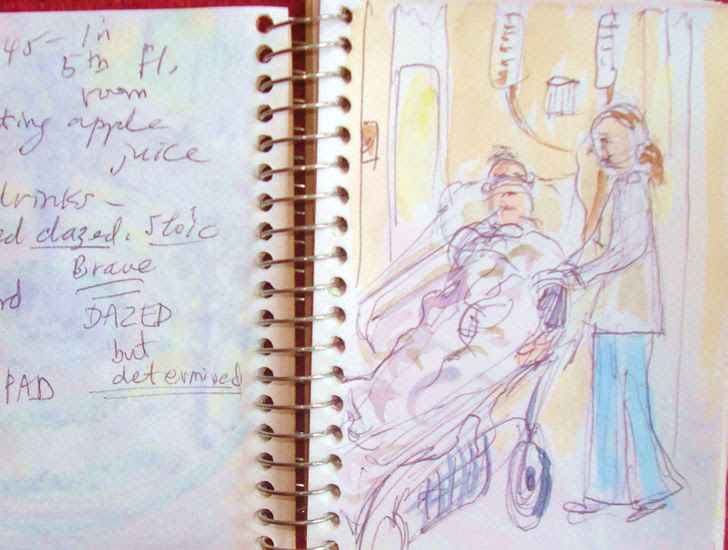 45 - In
5th fl,
room
ting apple
juice
drinks -
ed dazed. Stoic
Brave
rd
DAZED
but
PAD determined